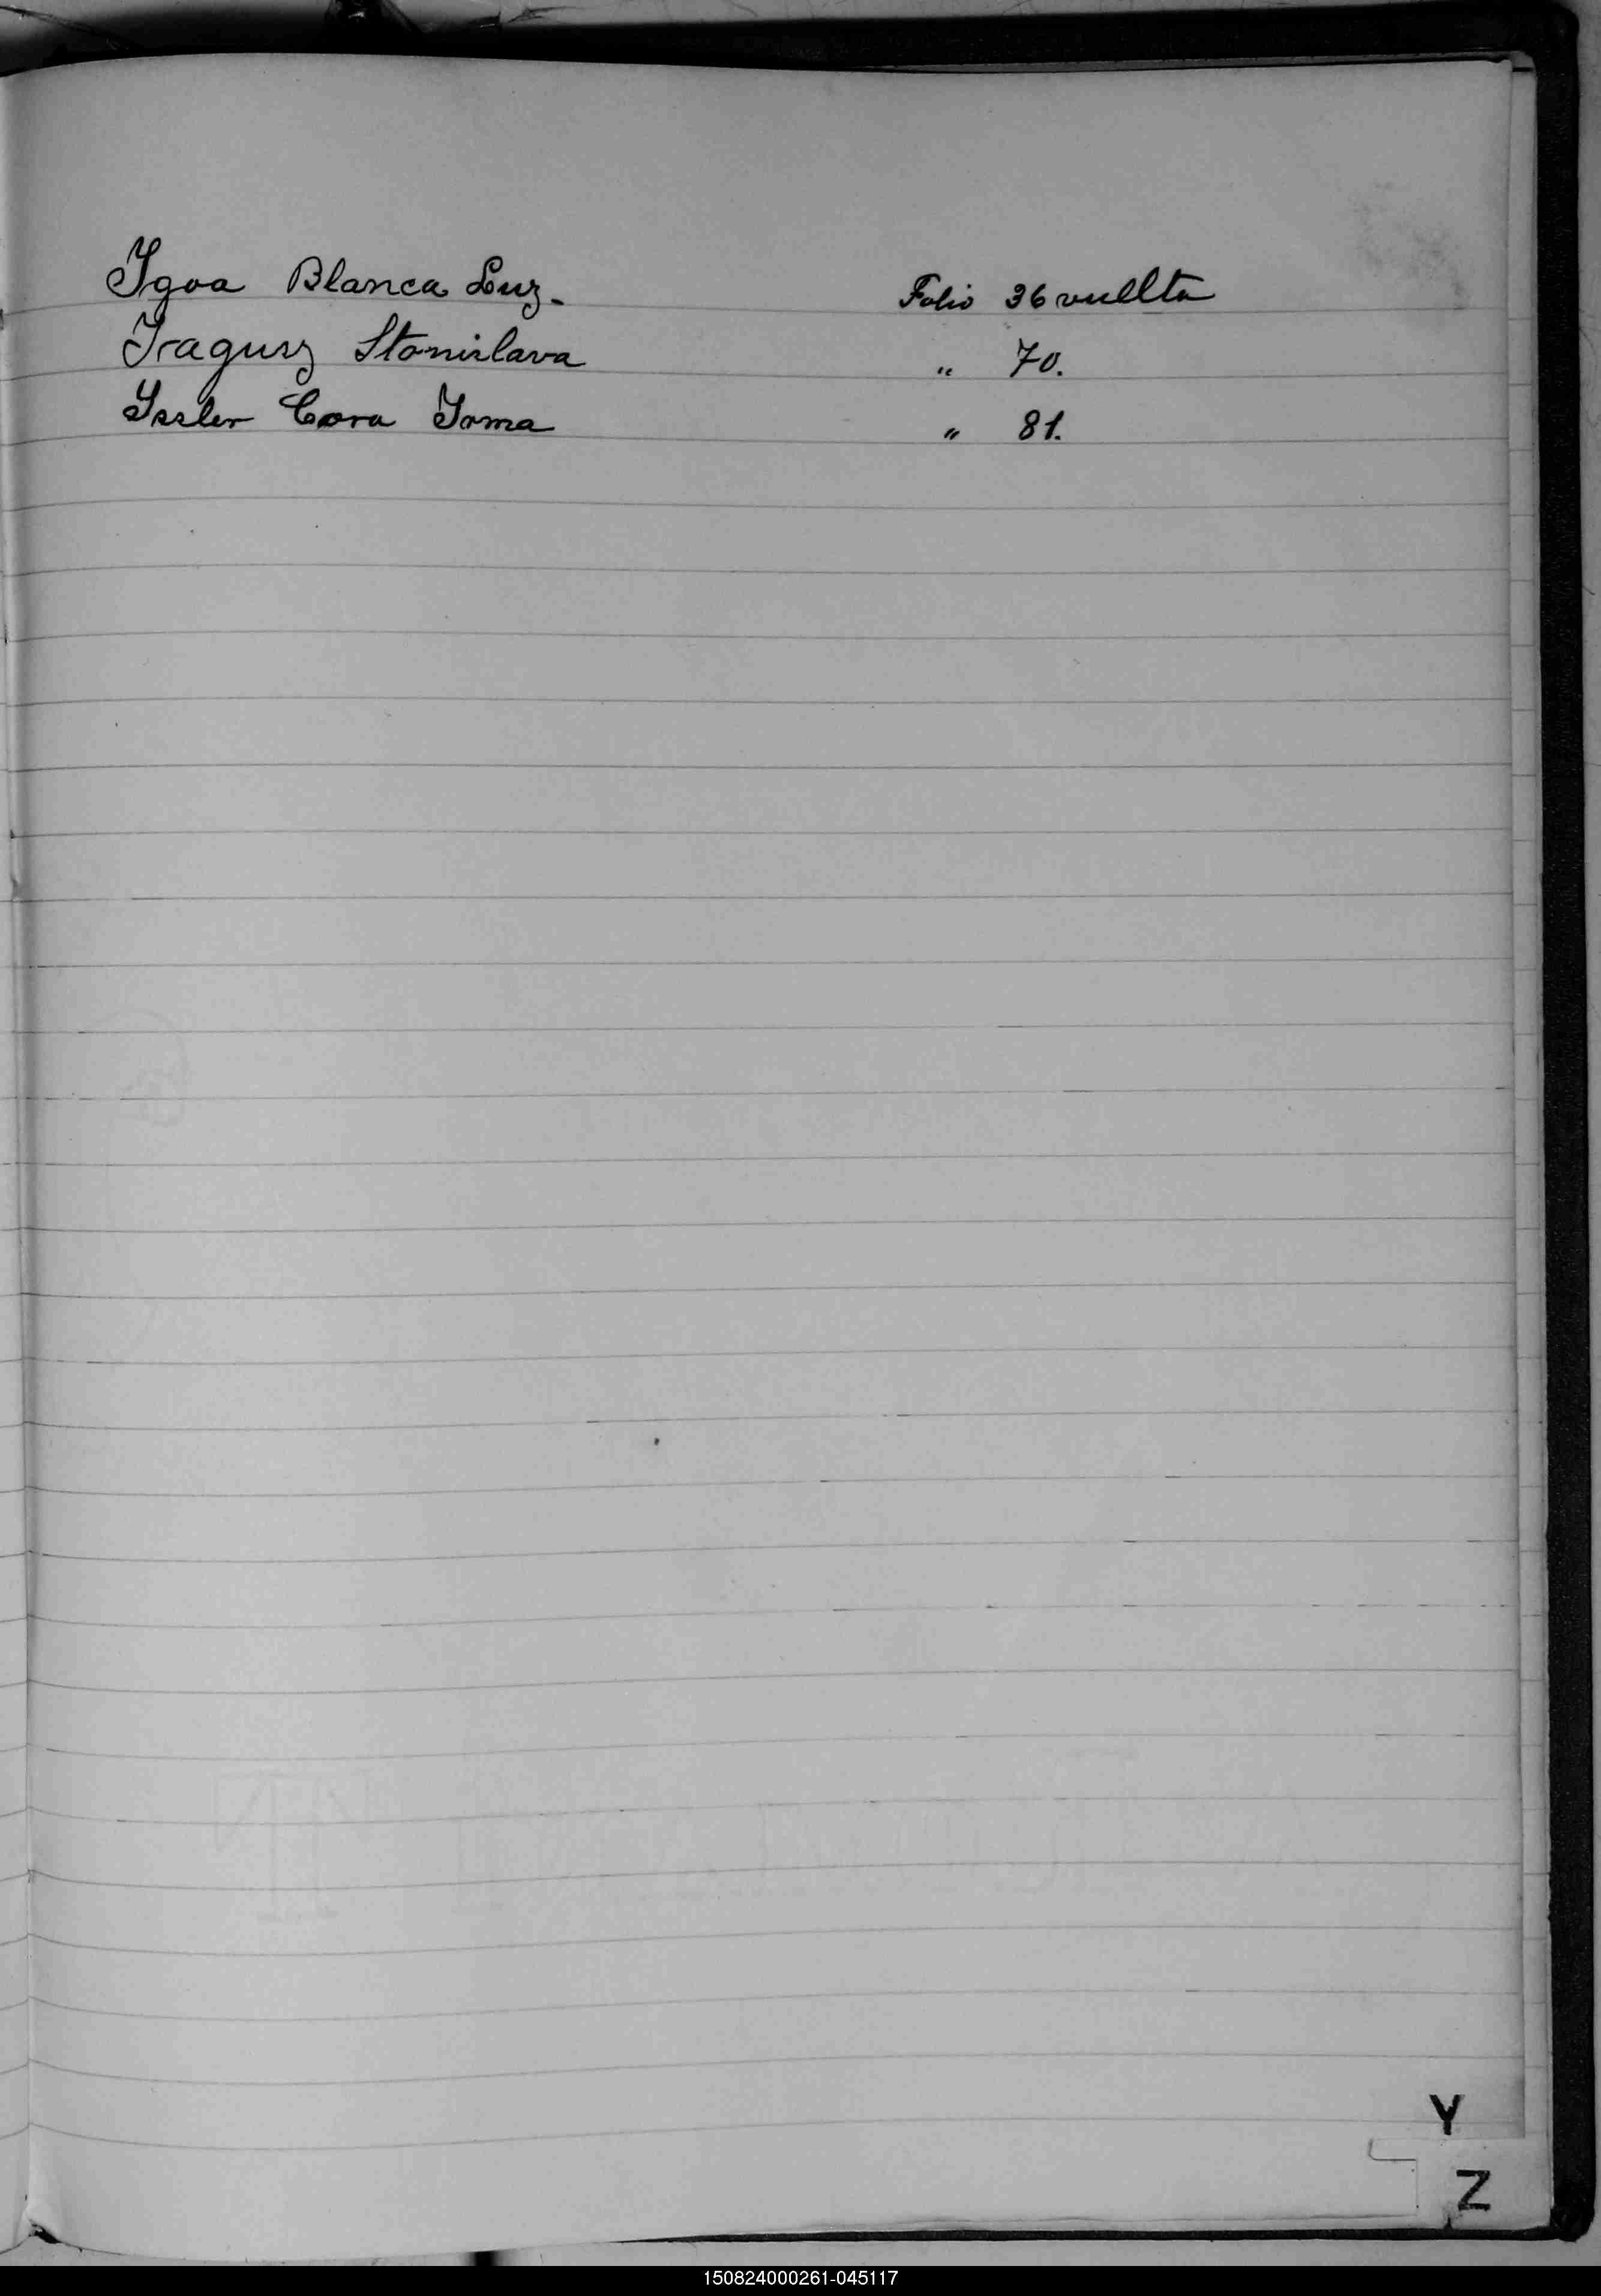 Ygoa Blanca Luz. Folio 36 vuellta
Yraguiz Stanislava " 70.
Yssler Cora Yrma " 81.
Y
Z
150824000261-045117